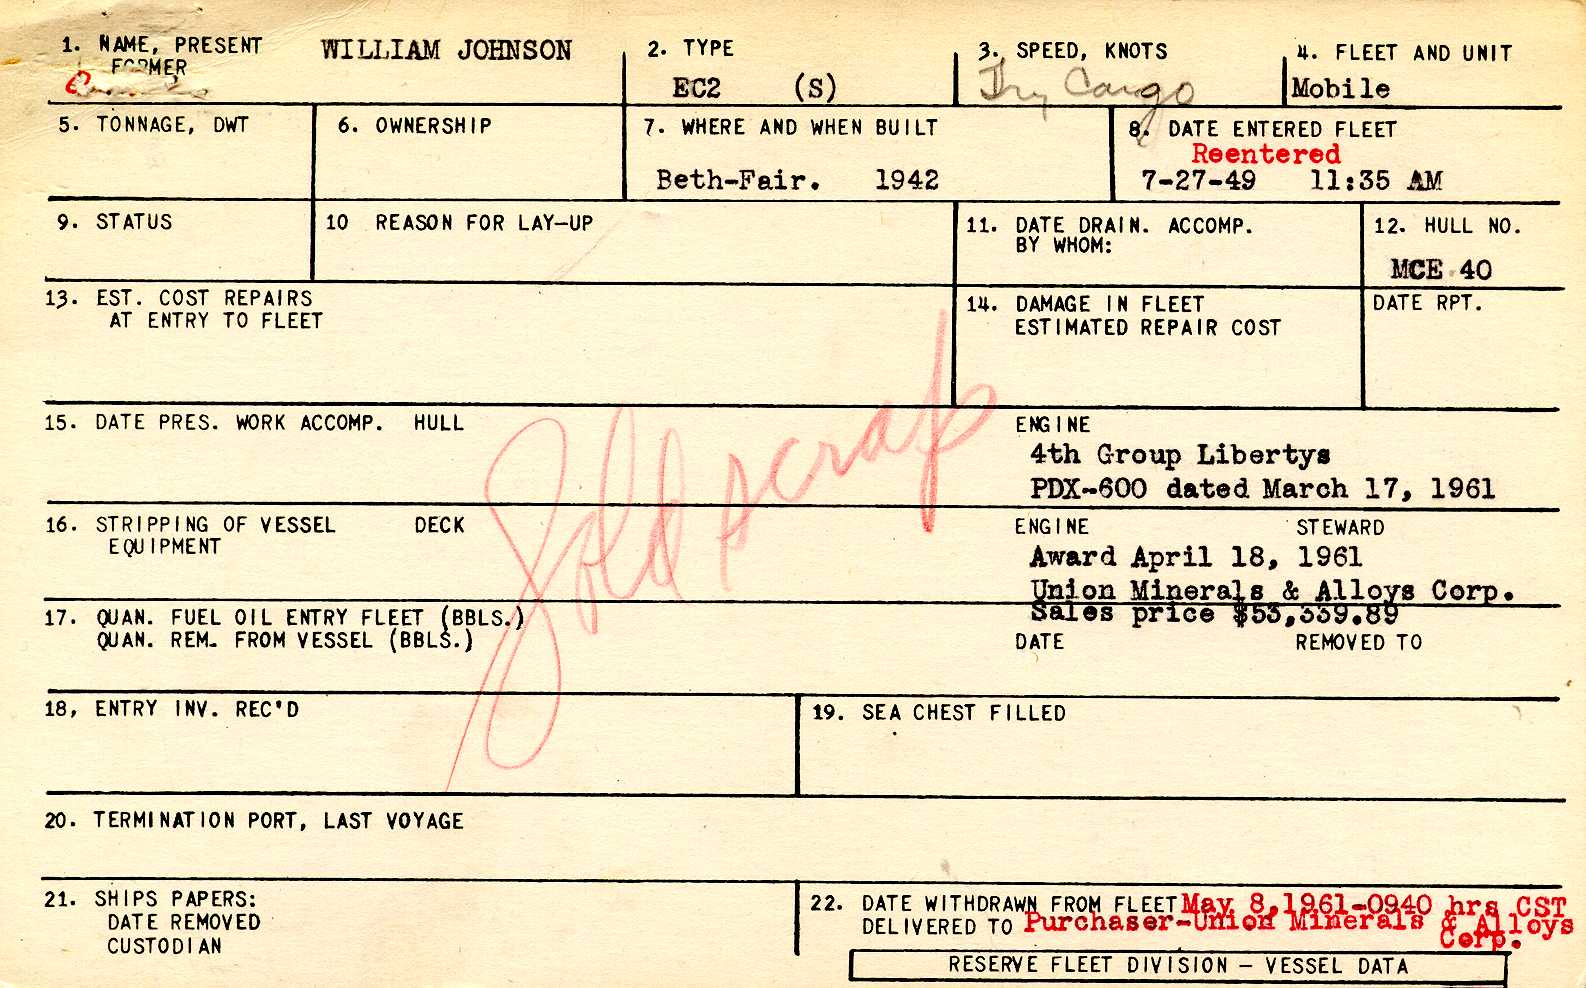 1. NAME, PRESENT WILLIAM JOHNSON
FORMER
2. TYPE
EC2 (S)
3. SPEED, KNOTS
Dry Cargo
4. FLEET AND UNIT
Mobile
5. TONNAGE, DWT
6. OWNERSHIP
7. WHERE AND WHEN BUILT
Beth-Fair. 1942
8. DATE ENTERED FLEET
Reentered
7-27-49 11:35 AM
9. STATUS
10 REASON FOR LAY-UP
11. DATE DRAIN. ACCOMP.
BY WHOM:
12. HULL NO.
MCE 40
13. EST. COST REPAIRS
AT ENTRY TO FLEET
14. DAMAGE IN FLEET
ESTIMATED REPAIR COST
DATE RPT.
Sold scrap
15. DATE PRES. WORK ACCOMP. HULL
ENGINE
4th Group Libertys
PDX-600 dated March 17, 1961
16. STRIPPING OF VESSEL DECK
EQUIPMENT
ENGINE STEWARD
Award April 18, 1961
Union Minerals & Alloys Corp.
Sales price $53,339.89
17. QUAN. FUEL OIL ENTRY FLEET (BBLS.)
QUAN. REM. FROM VESSEL (BBLS.)
DATE REMOVED TO
18, ENTRY INV. REC'D
19. SEA CHEST FILLED
20. TERMINATION PORT, LAST VOYAGE
21. SHIPS PAPERS:
DATE REMOVED
CUSTODIAN
22. DATE WITHDRAWN FROM FLEET May 8,1961-0940 hrs CST
DELIVERED TO Purchaser-Union Minerals & Alloys
Corp.
RESERVE FLEET DIVISION – VESSEL DATA